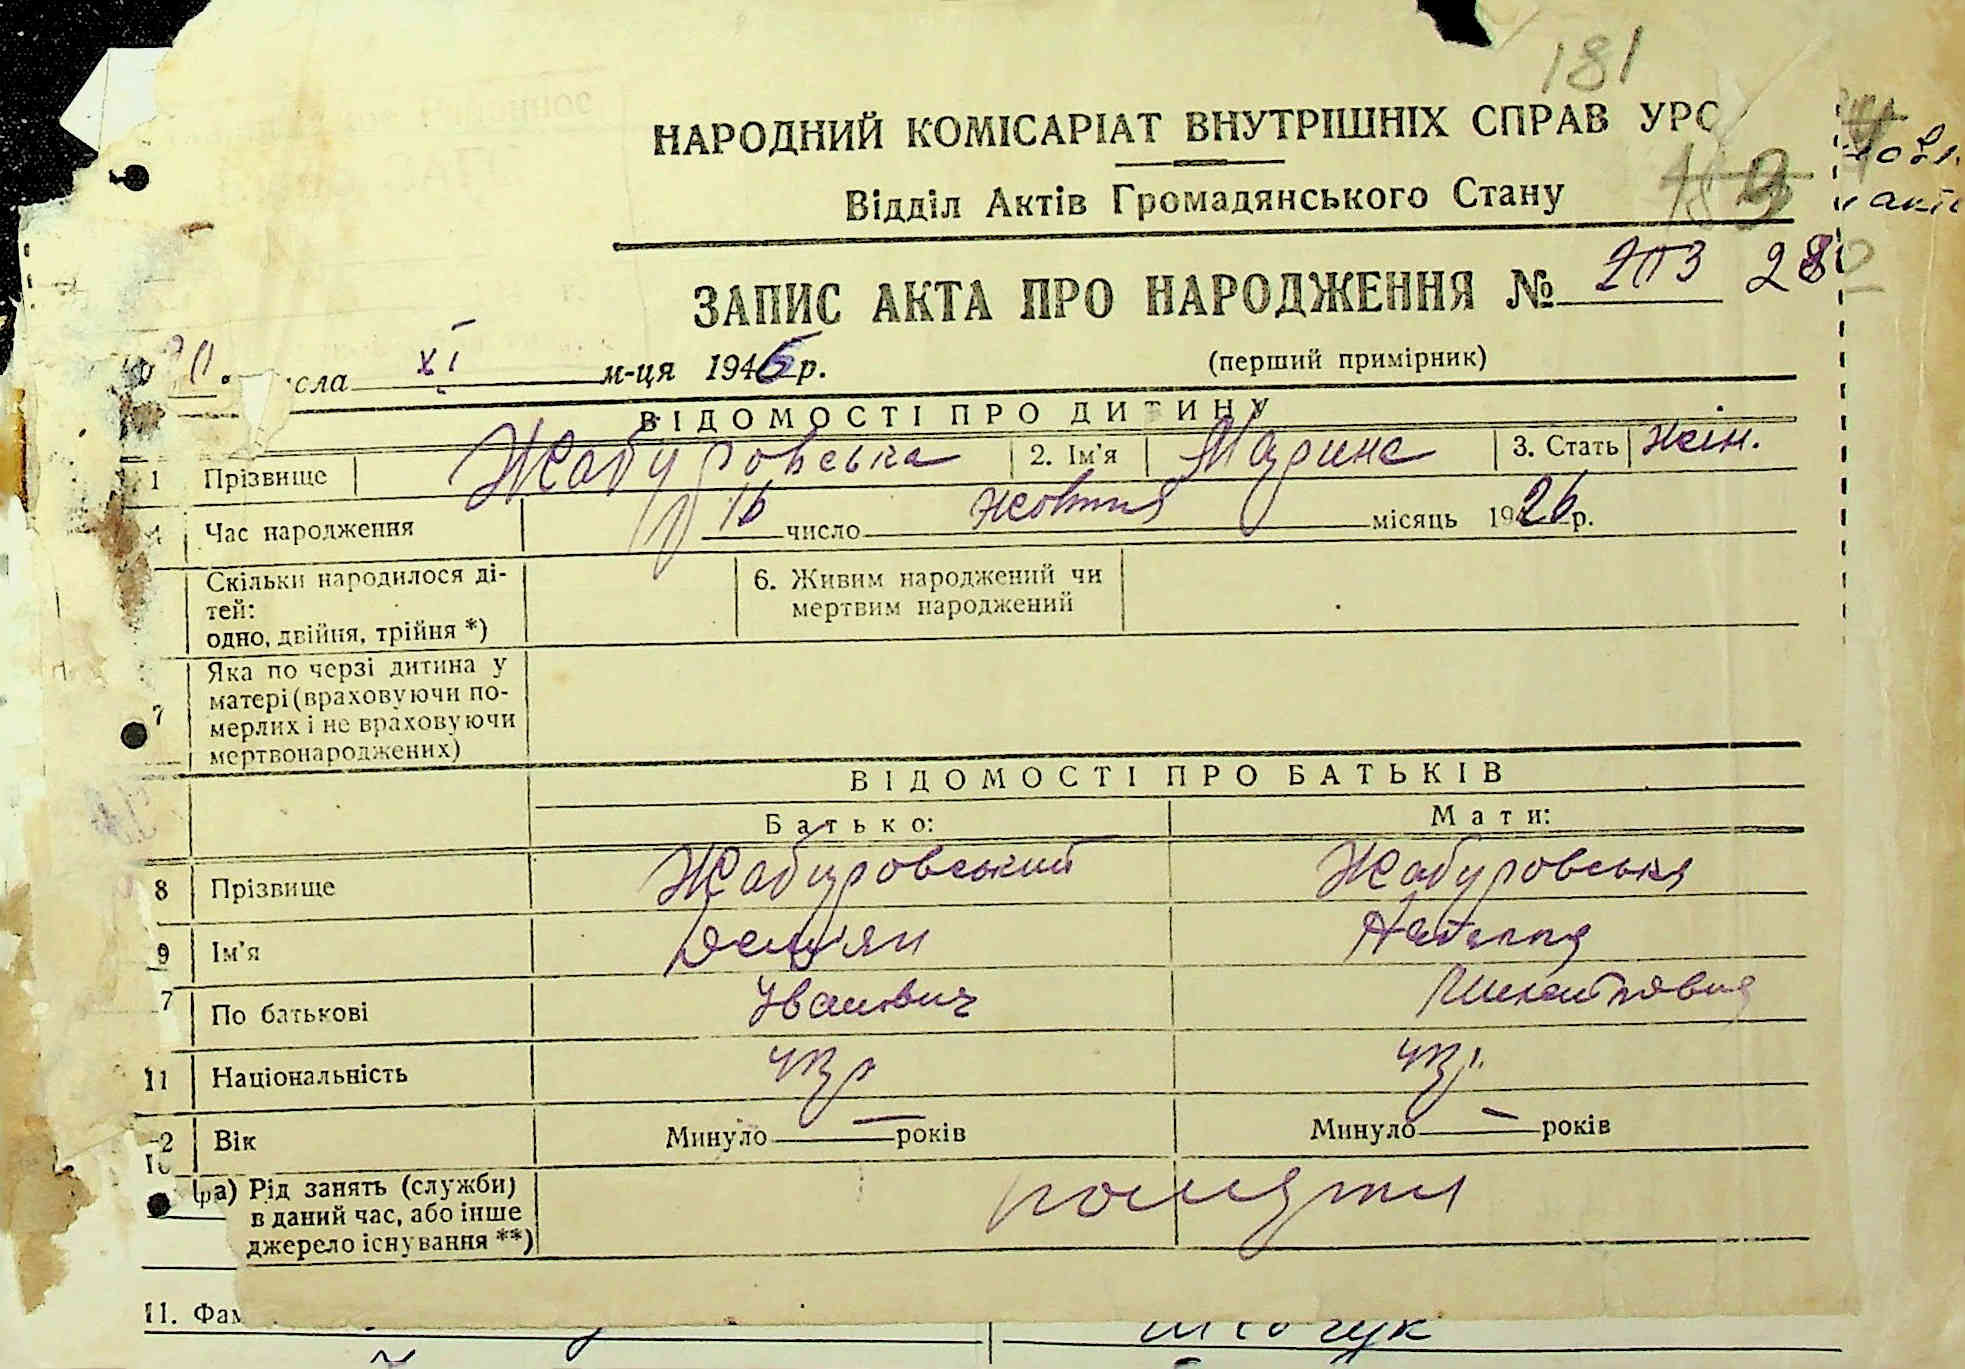 181
НАРОДНИЙ КОМІСАРІАТ ВНУТРІШНІХ СПРАВ УРС
Відділ Актів Громадянського Стану
ЗАПИС АКТА ПРО НАРОДЖЕННЯ № 203 28
сла XI м-ця 1945 р. (перший примірник)
ВІДОМОСТІ ПРО ДИТИНУ
1 Прізвище Жабуровська 2. Ім'я Марина 3. Стать жін.
Час народження 16 число жовтня місяць 1926 р.
Скільки народилося ді-
тей:
одно, двійня, трійня *)
6. Живим народжений чи
мертвим народжений
7 Яка по черзі дитина у
матері (враховуючи по-
мерлих і не враховуючи
мертвонароджених)
ВІДОМОСТІ ПРО БАТЬКІВ
Батько: Мати:
8 Прізвище Жабуровський Жабуровська
9 Ім'я Дем'ян
По батькові Іванович
11 Національність укр укр.
2 Вік Минуло — років Минуло — років
а) Рід занять (служби)
в даний час, або інше
джерело існування **)
11. Фам